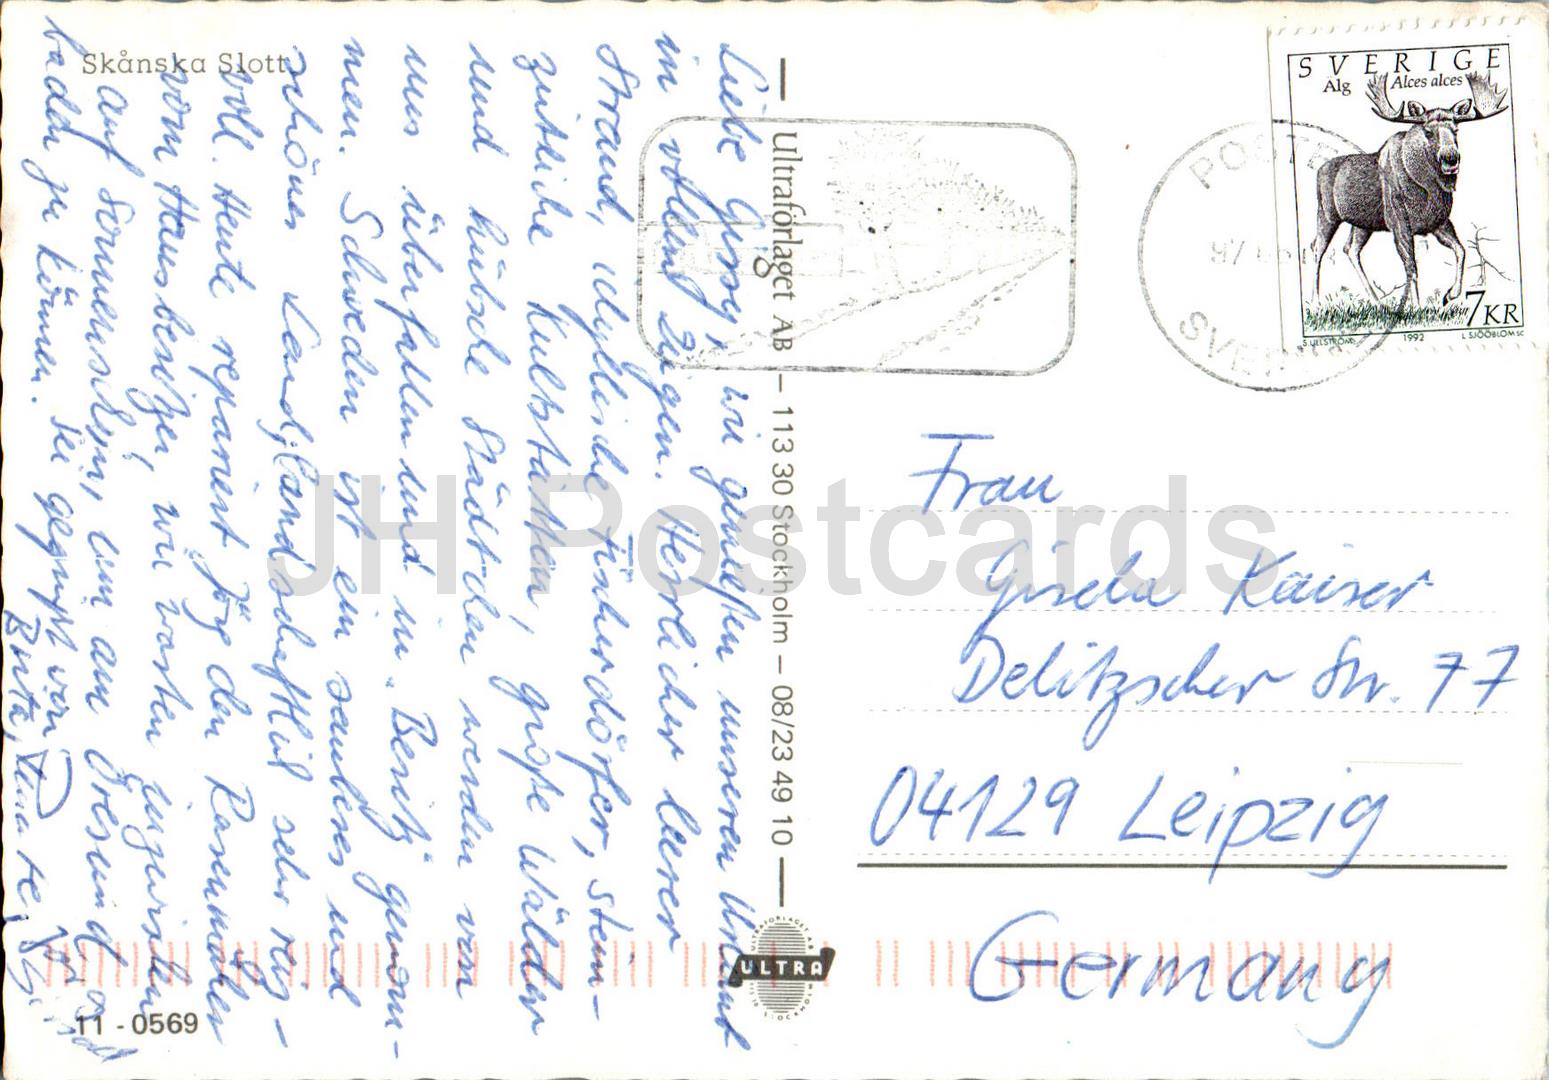 Skånska Slott
Liebe Gissy, wir genießen unseren Urlaub
in vollen Zügen. Herrlicher leerer
Strand, idyllische Fischerdörfer, stein-
zeitliche Kultstätten, große Wälder
und hübsche Städtchen werden von
uns überfallen und in „Besitz“ genom-
men. Schweden ist ein sauberes und
schönes Land, landschaftlich sehr reiz-
voll. Heute repariert Jörg den Rasenmäher
vom Hausbesitzer, wir warten inzwischen
auf Sonnenschein, um am Öresund
baden zu können. Sei gegrüßt von
Ultraförlaget AB – 113 30 Stockholm – 08/23 49 10
ULTRAFÖRLAGET AB
ULTRA
STOCKHOLM
11 - 0569
SVERIGE
Älg Alces alces
7 KR
S. ULLSTRÖM 1992 L. SJÖÖBLOM SC
POSTEN
SVERIGE
Frau
Gisela Kaiser
Delitzscher Str. 77
04129 Leipzig
Germany
JH Postcards